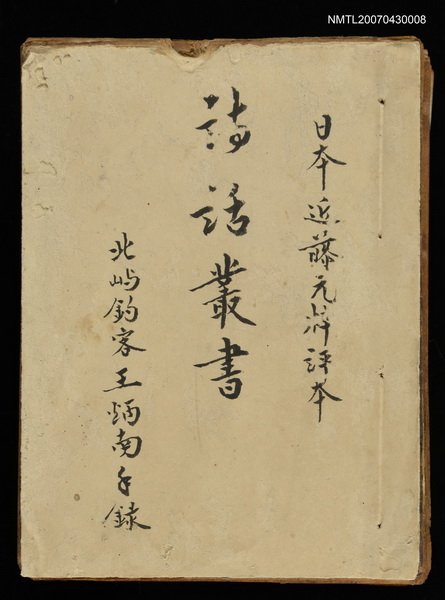 NMTL20070430008
日本近藤元粹評本
詩話叢書
北嶼釣客王炳南手錄